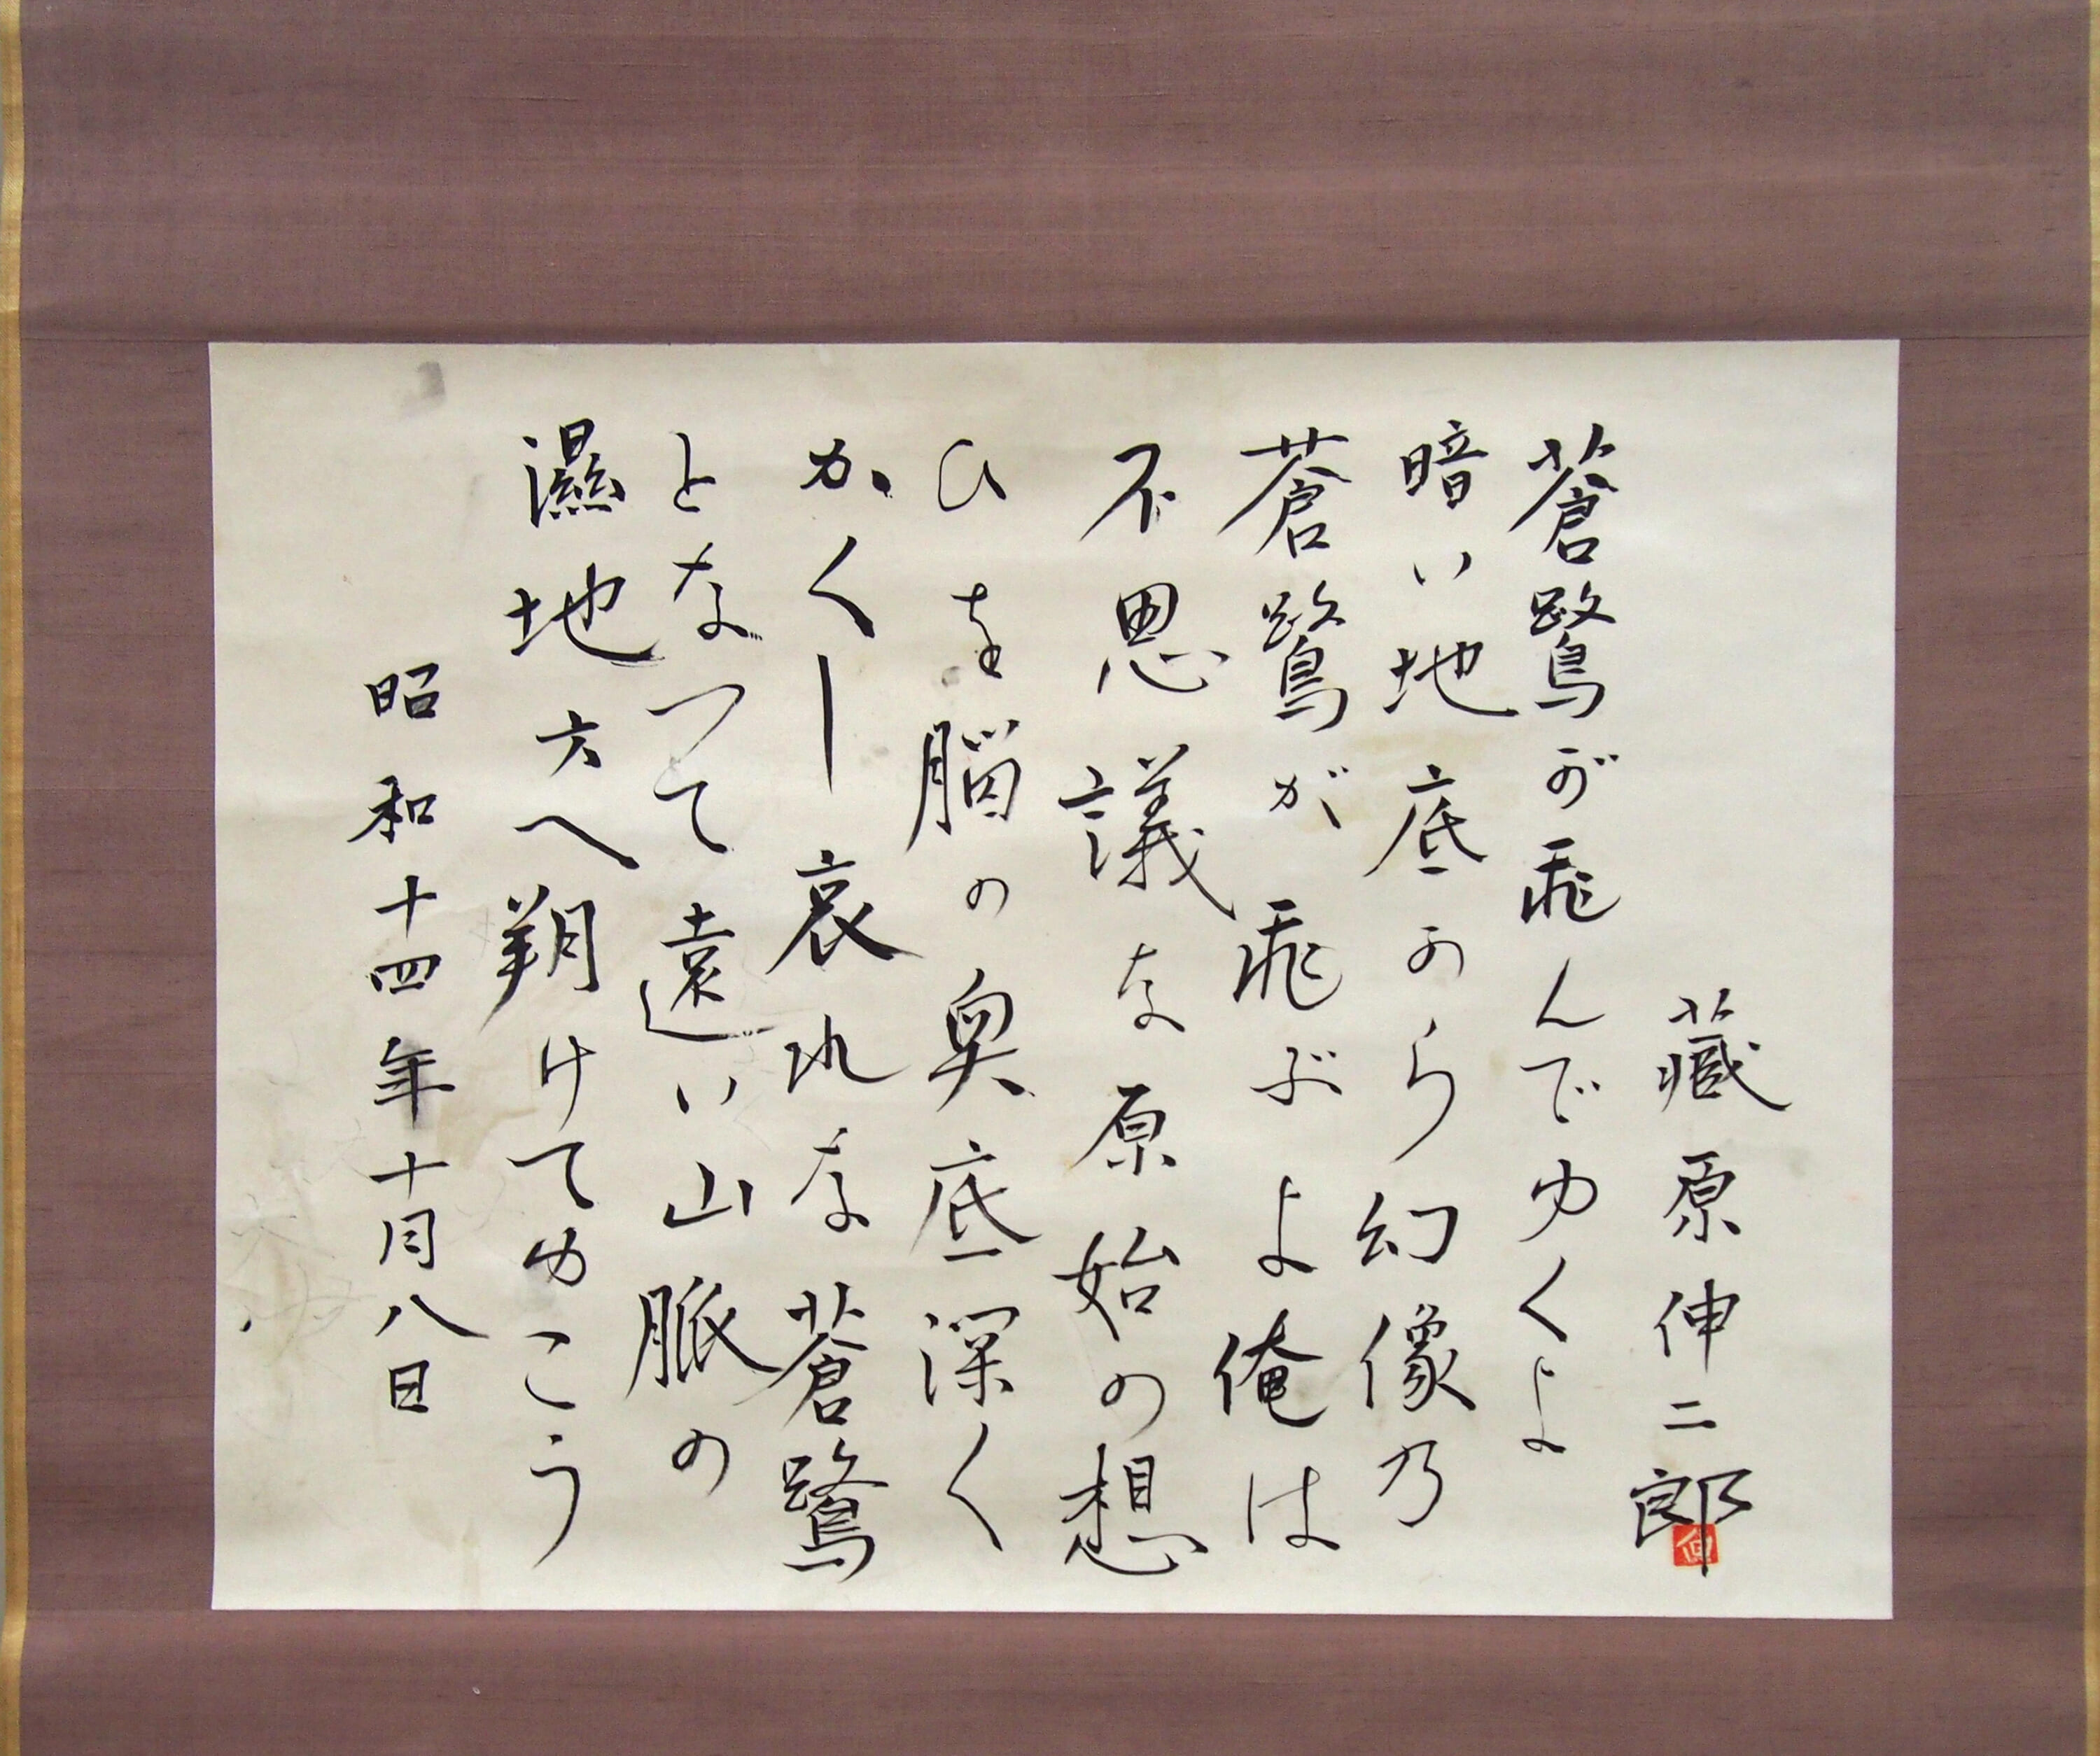 藏原伸二郎
蒼鷺が飛んでゆくよ
暗い地底から幻像乃
蒼鷺が飛ぶよ俺は
不思議な原始の想
ひを脳の奥底深く
かくし哀れな蒼鷺
となつて遠い山脈の
濕地方へ翔けてゆこう
昭和十四年十月八日